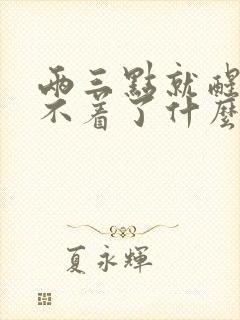 兩三點就醒
不着了什麽
夏永輝